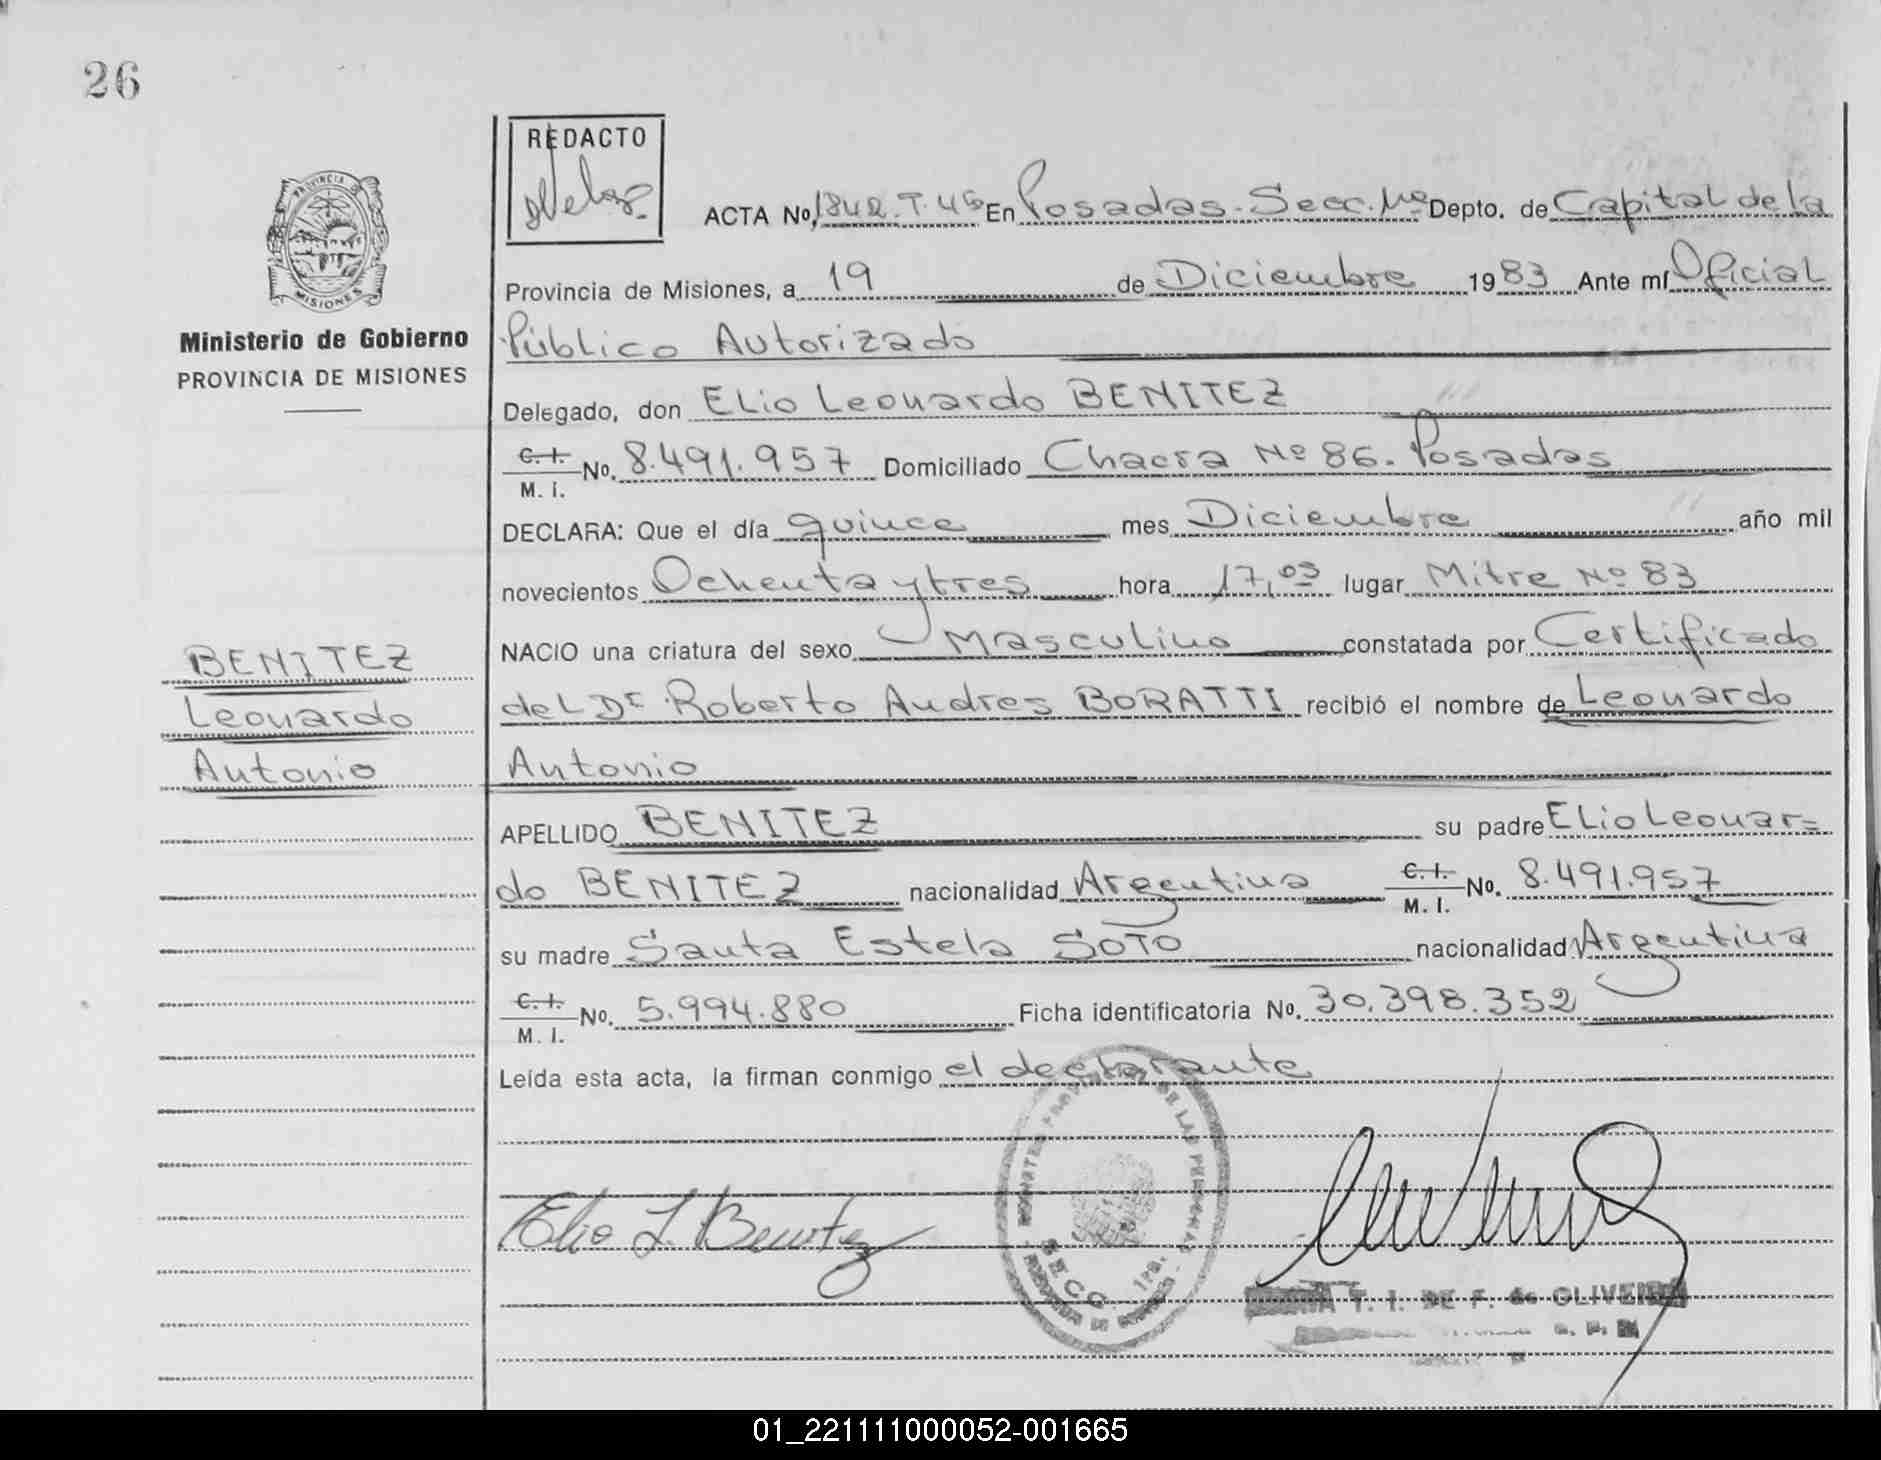 26
REDACTO
PROVINCIA DE
MISIONES
Ministerio de Gobierno
PROVINCIA DE MISIONES
ACTA No. 1842.T.46 En Posadas-Secc.1ra Depto. de Capital de la
Provincia de Misiones, a 19 de Diciembre 1983 Ante mí Oficial
Público Autorizado
Delegado, don Elio Leonardo BENITEZ
C.I.
M. I. No. 8.491.957 Domiciliado Chacra Nº 86. Posadas
DECLARA: Que el día quince mes Diciembre año mil
novecientos Ochenta y tres hora 17,03 lugar Mitre Nº 83
NACIO una criatura del sexo Masculino constatada por Certificado
del Dr. Roberto Andres BORATTI recibió el nombre de Leonardo
Antonio
BENITEZ
Leonardo
Antonio
APELLIDO BENITEZ su padre Elio Leonar=
do BENITEZ nacionalidad Argentina C.I.
M. I. No. 8.491.957
su madre Santa Estela SOTO nacionalidad Argentina
C.I.
M. I. No. 5.994.880 Ficha identificatoria No. 30.398.352
Leída esta acta, la firman conmigo el declarante
Elio L. Benitez
DE LAS PERSONAS
SECC. 1ra.
T. I. DE F. de OLIVEIRA
01_221111000052-001665